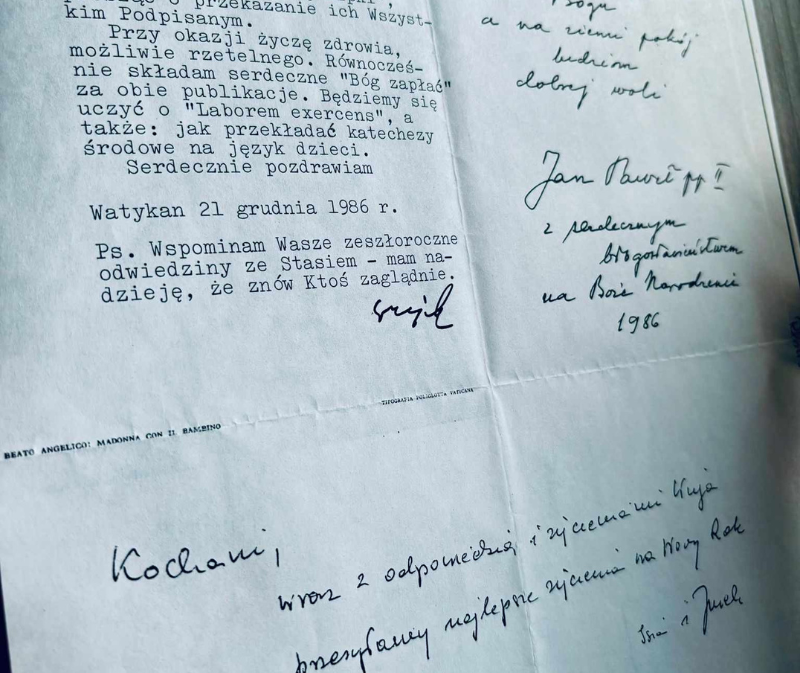 o przekazanie ich Wszyst-
kim Podpisanym.
Przy okazji życzę zdrowia,
możliwie rzetelnego. Równocześ-
nie składam serdeczne "Bóg zapłać"
za obie publikacje. Będziemy się
uczyć o "Laborem exercens", a
także: jak przekładać katechezy
środowe na język dzieci.
Serdecznie pozdrawiam
Watykan 21 grudnia 1986 r.
Ps. Wspominam Wasze zeszłoroczne
odwiedziny ze Stasiem - mam na-
dzieję, że znów Ktoś zaglądnie.
Bogu
a na ziemi pokój
ludziom
dobrej woli
Jan Paweł pp II
z serdecznym
błogosławieństwem
na Boże Narodzenie
1986
TIPOGRAFIA POLIGLOTTA VATICANA
BEATO ANGELICO: MADONNA CON IL BAMBINO
Kochani,
wraz z odpowiedzią i życzeniami Wuja
przesyłamy najlepsze życzenia na Nowy Rok
i Jurek